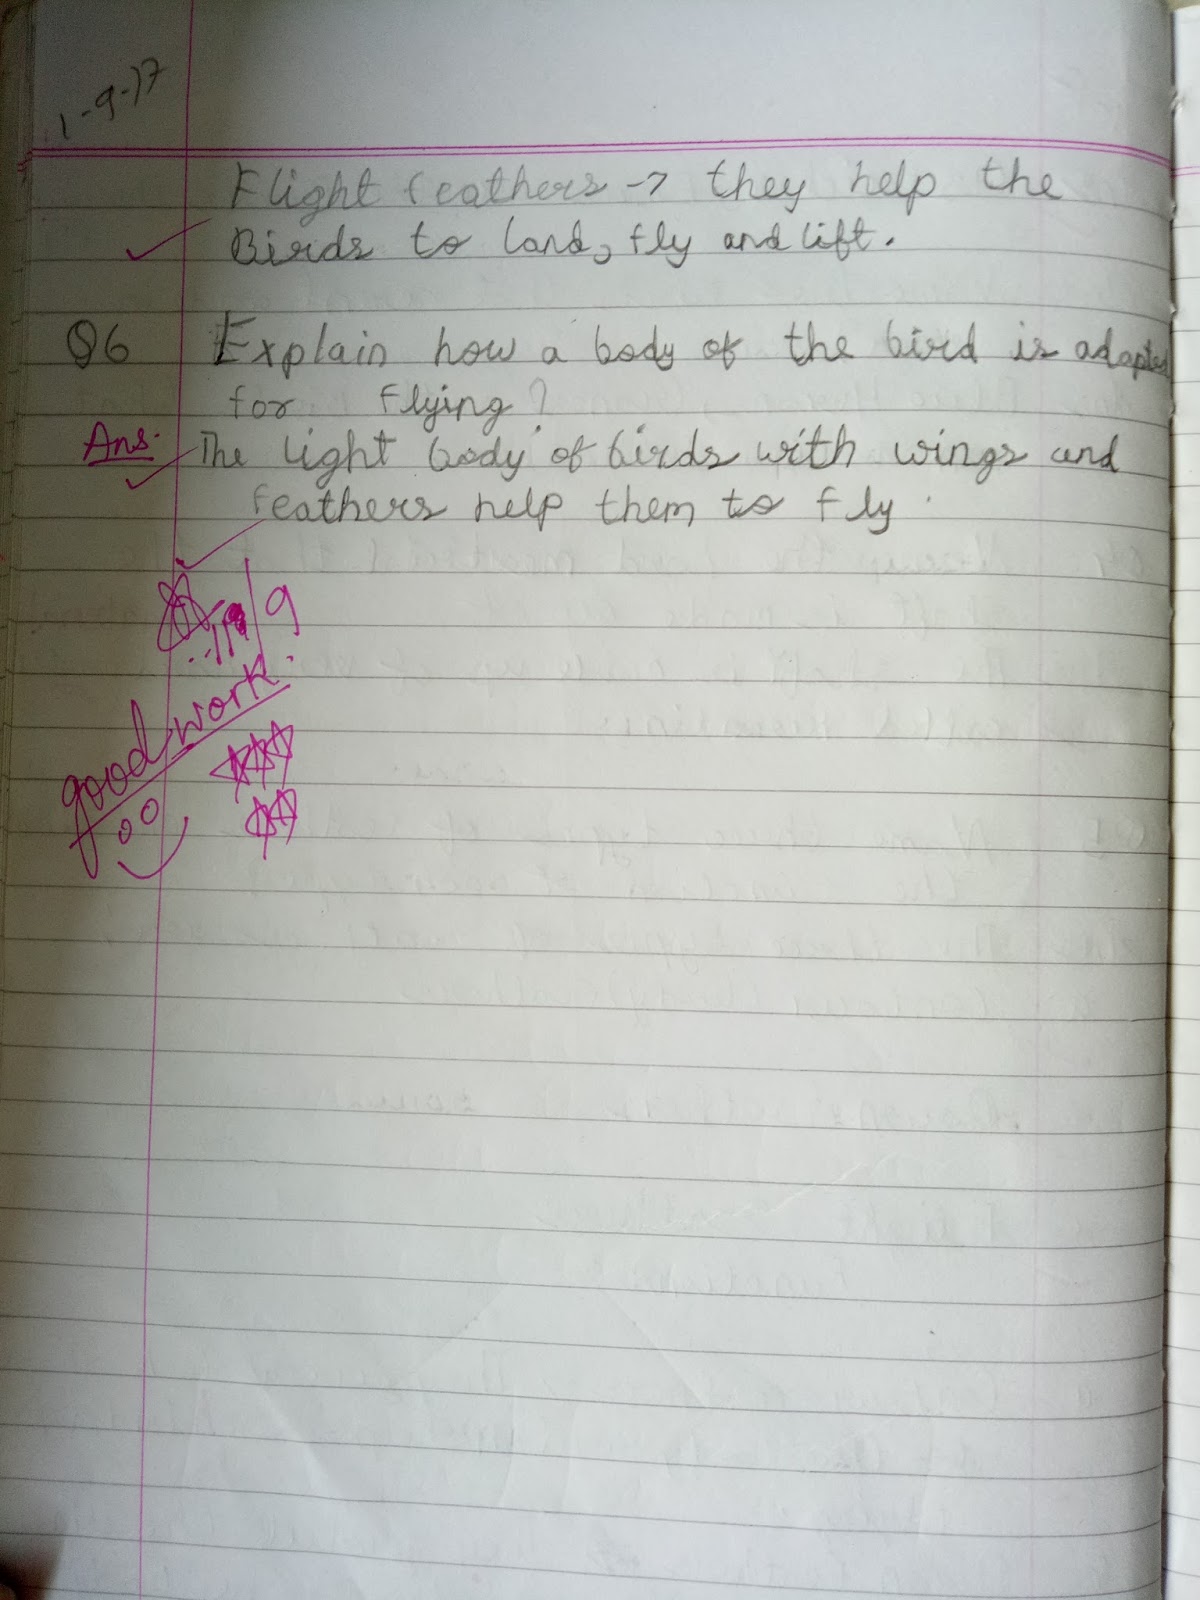 1-9-17
Flight feathers → they help the
Birds to land, fly and lift.
Q6 Explain how a body of the bird is adapted
for flying?
Ans. The light body of birds with wings and
feathers help them to fly.
9
good work.